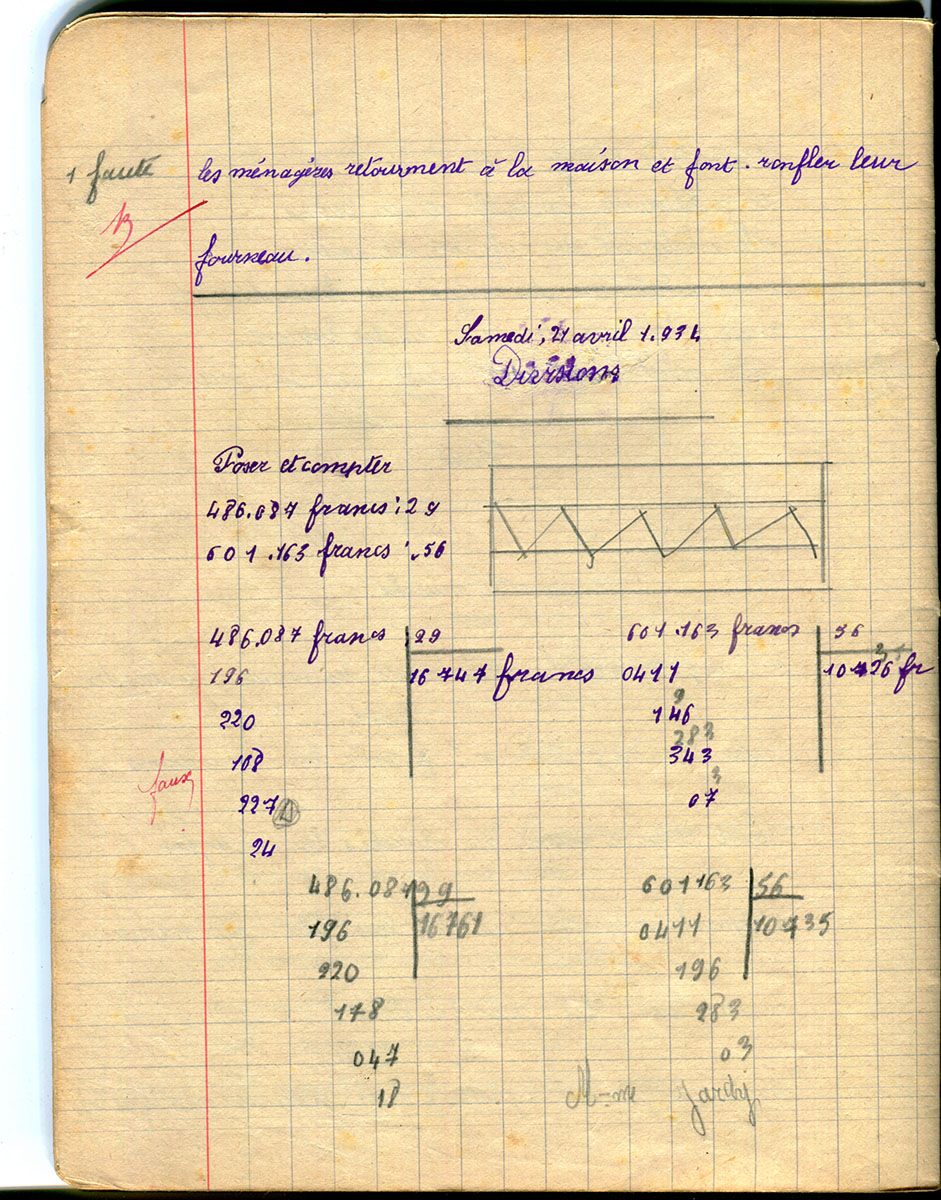 1 faute
les ménagères retournent à la maison et font. ronfler leur
fourneau.
Samedi, 21 avril 1.934
Divisions
Poser et compter
486.087 francs : 29
601.163 francs : 56
486.087 francs 29
196 16 747 francs
220
108
faux
227
24
601.163 francs 56
0411
146
343
07
486.087 29
196 16761
220
178
047
18
601163 56
0411 10735
196
283
03
M-me